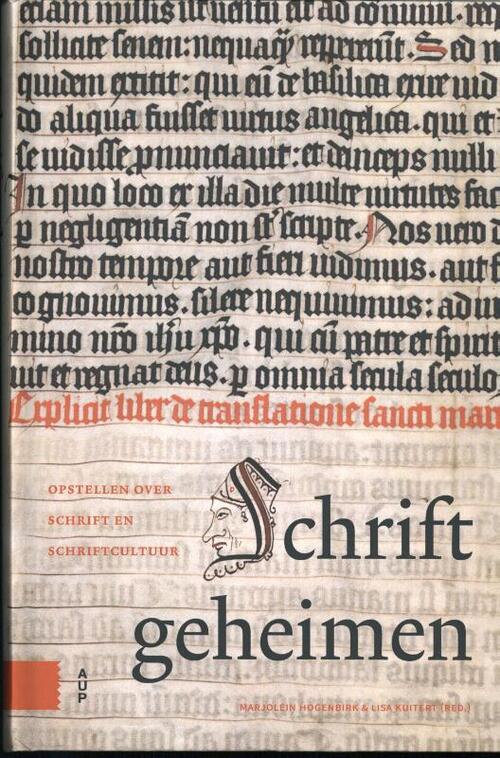 etiam multis iuventuti et ad
sollicite senem: nequaq̄ reppererūt. Sed
quidem extitit: qui eū de basilica exire
do aliqua fuisset virtus angelica. qui et
se vidisse pnunciavit: et deinceps nulli
In quo loco ex illa die multe virtutes
p negligentiā non sūt scripte. Nos vero
nostro tempore aut fieri vidimus. aut
cognovimus. silere nequivimus:
mino nrō ihū xpō. qui cū patre et
vit et regnat deus. p omnia secula
Explicit liber de translatione sancti
OPSTELLEN OVER
SCHRIFT EN
SCHRIFTCULTUUR
Schrift
geheimen
AUP
MARJOLEIN HOGENBIRK & LISA KUITERT (RED.)